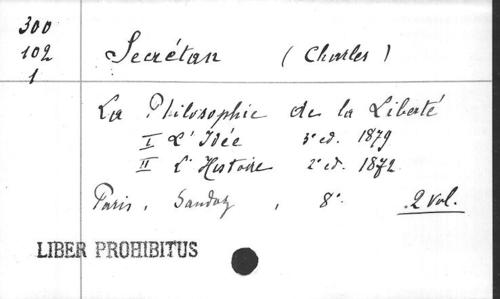 300
102
1
Secrétan (Charles)
La Philosophie de la Liberté
I L'Idée 3e ed. 1879
II L'Histoire 2e ed. 1872
Paris, Sandoz, 8° 2 vol.
LIBER PROHIBITUS